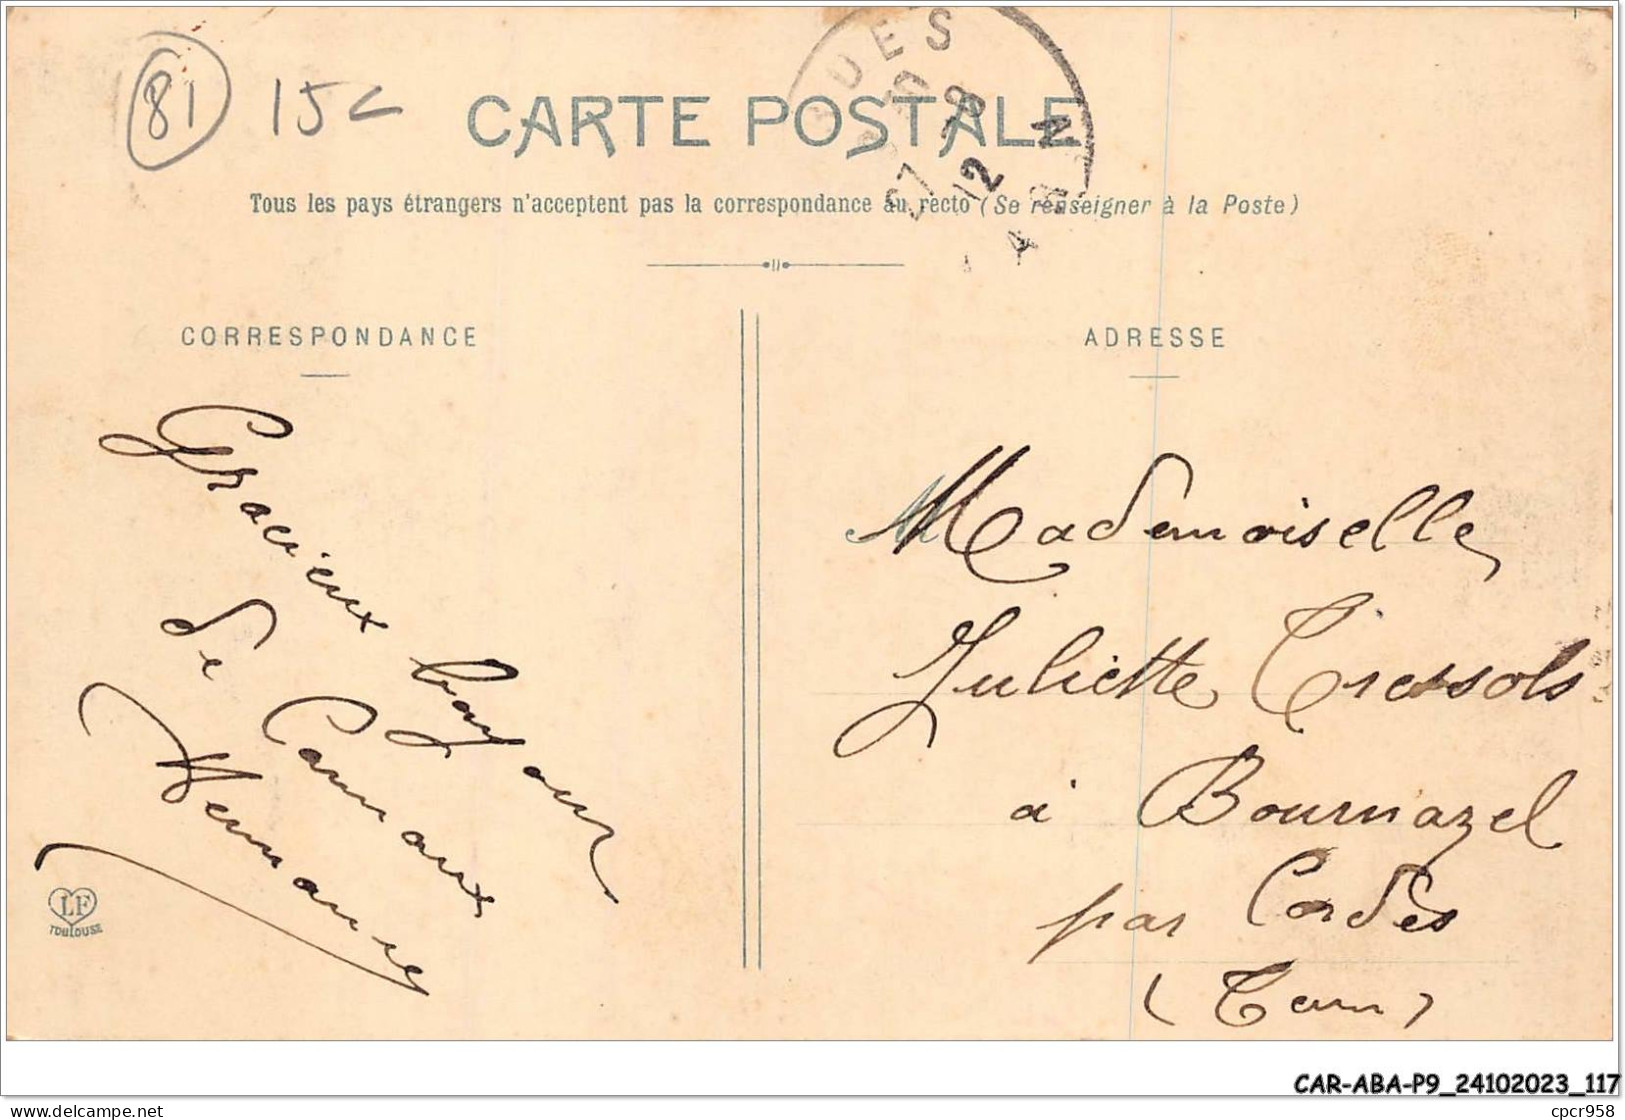 81 15c
CARTE POSTALE
Tous les pays étrangers n'acceptent pas la correspondance au recto (Se renseigner à la Poste)
CORRESPONDANCE
Gracieux bonjour
de Carmaux
LF
TOULOUSE
ADRESSE
Mademoiselle
Juliette Tressols
à Bournazel
par Cordes
(Tarn)
CAR-ABA-P9_24102023_117
delcampe.net
cpcr958